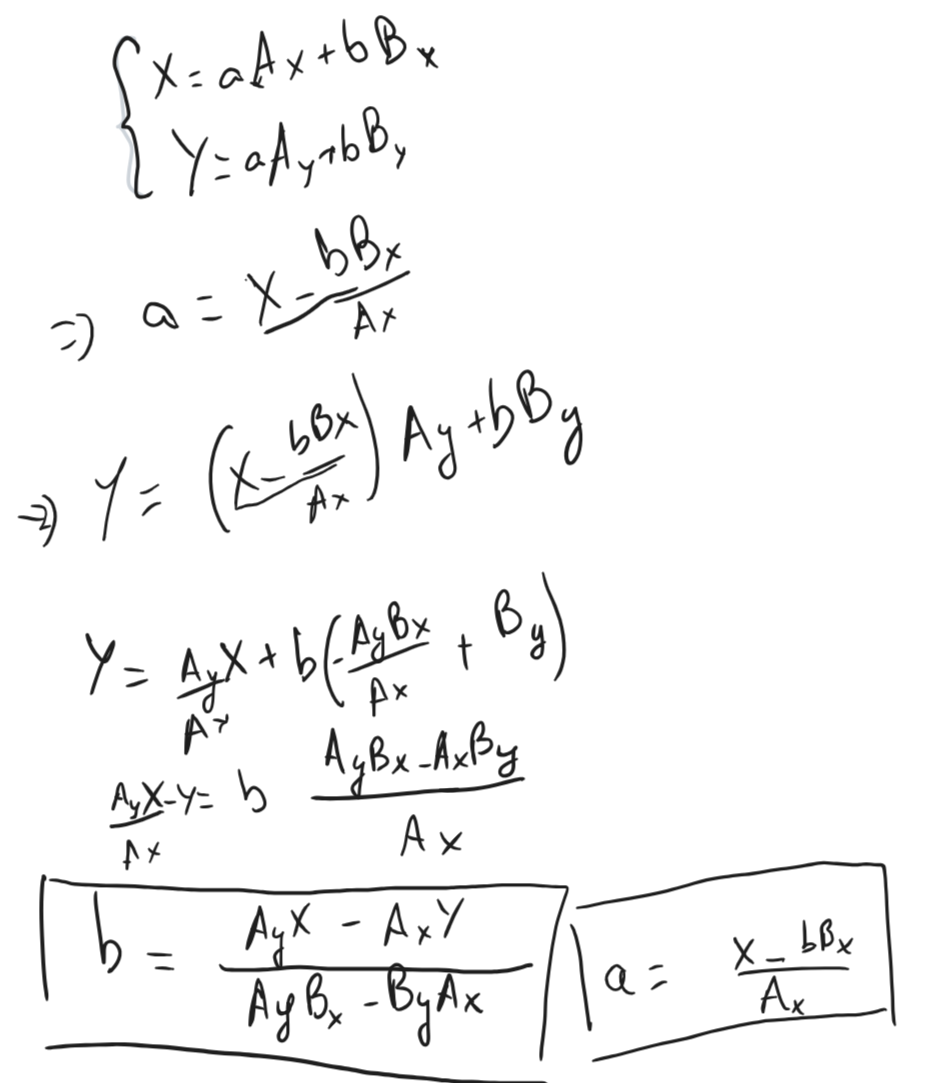 X = aAx + bBx
Y = aAy + bBy
⇒ a = (X - bBx)/Ax
⇒ Y = ((X - bBx)/Ax) Ay + bBy
Y = Ay/Ax X + b(-AyBx/Ax + By)
AyX/Ax - Y = b (AyBx - AxBy)/Ax
b = (AyX - AxY)/(AyBx - ByAx)
a = (X - bBx)/Ax